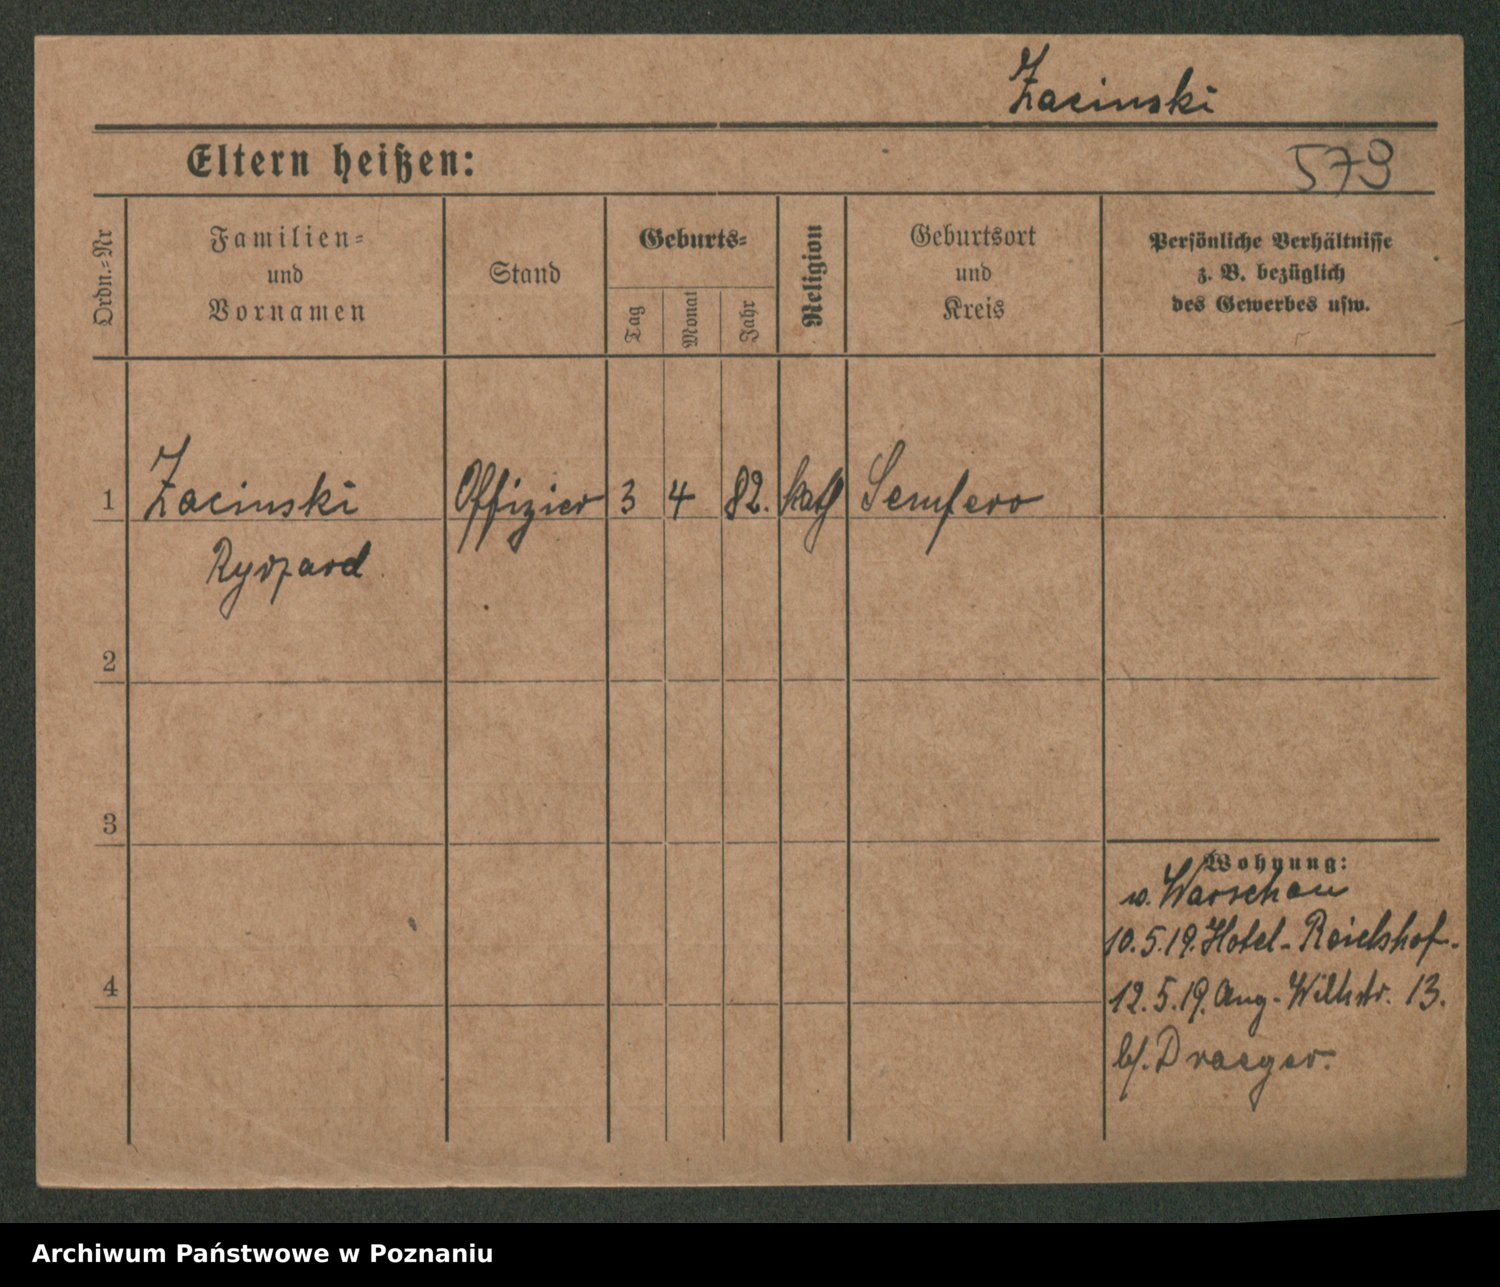 Zacinski
Eltern heißen:
579
Ordn.=Nr
Familien=
und
Vornamen
Stand
Geburts=
Tag
Monat
Jahr
Religion
Geburtsort
und
Kreis
Persönliche Verhältnisse
z. B. bezüglich
des Gewerbes usw.
1 Zacinski Offizier 3 4 82. kath Semfero
Ryszard
2
3
4
Wohnung:
w. Warschau
10.5.19. Hotel-Reichshof.
12.5.19. Aug-Wilhstr. 13.
b/. Draeger.
Archiwum Państwowe w Poznaniu